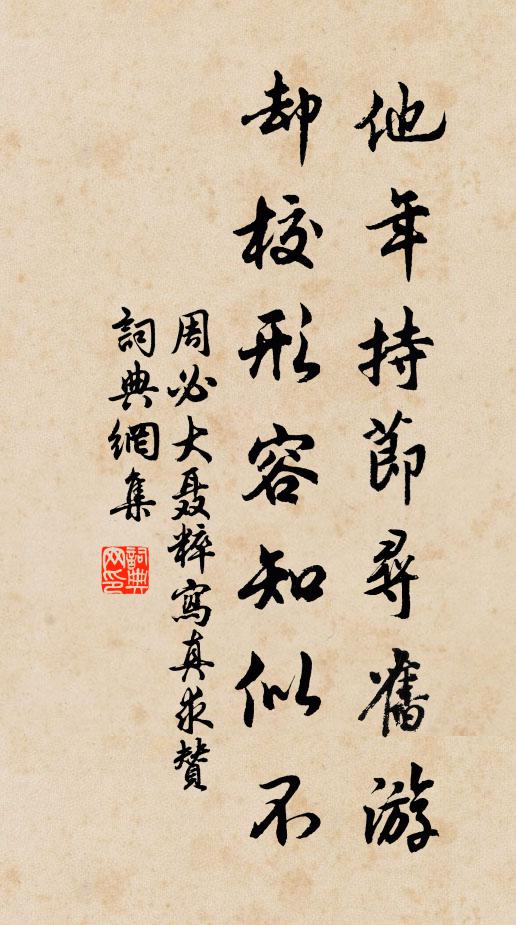 他年持節尋舊游
却校形容知似不
周必大聂粹寫真求贊
詞典網集
詞典网印